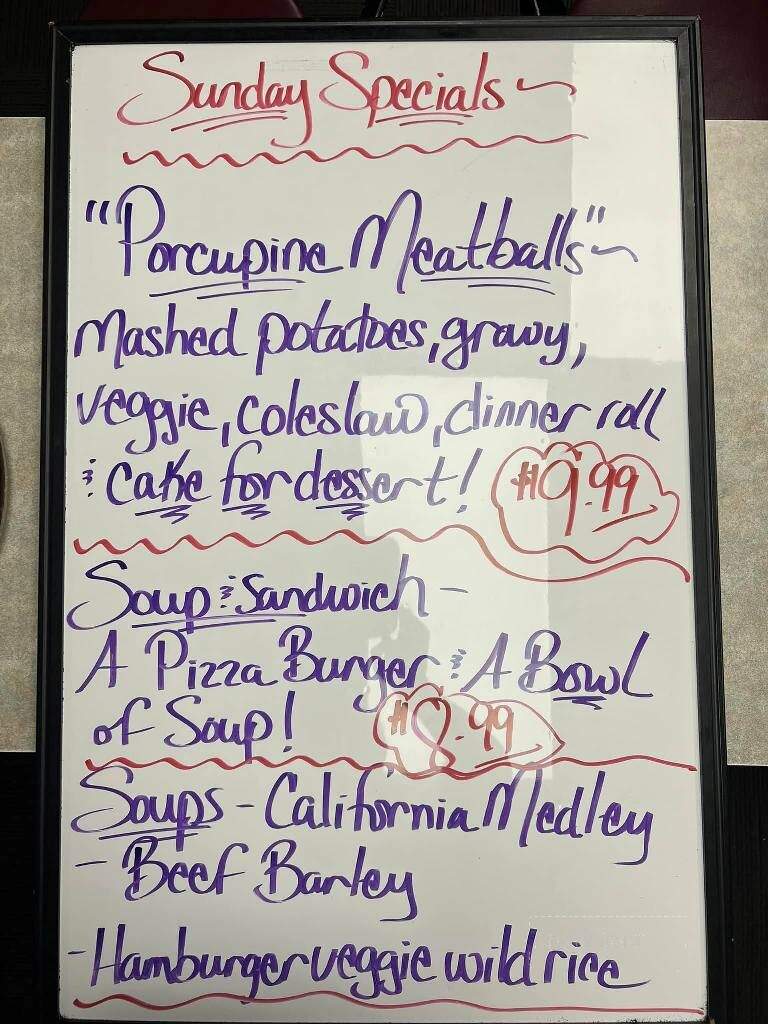 Sunday Specials ~
"Porcupine Meatballs" ~
Mashed potatoes, gravy,
veggie, coleslaw, dinner roll
& cake for dessert! $9.99
Soup & Sandwich -
A Pizza Burger & A Bowl
of Soup! $8.99
Soups - California Medley
- Beef Barley
- Hamburger veggie wild rice